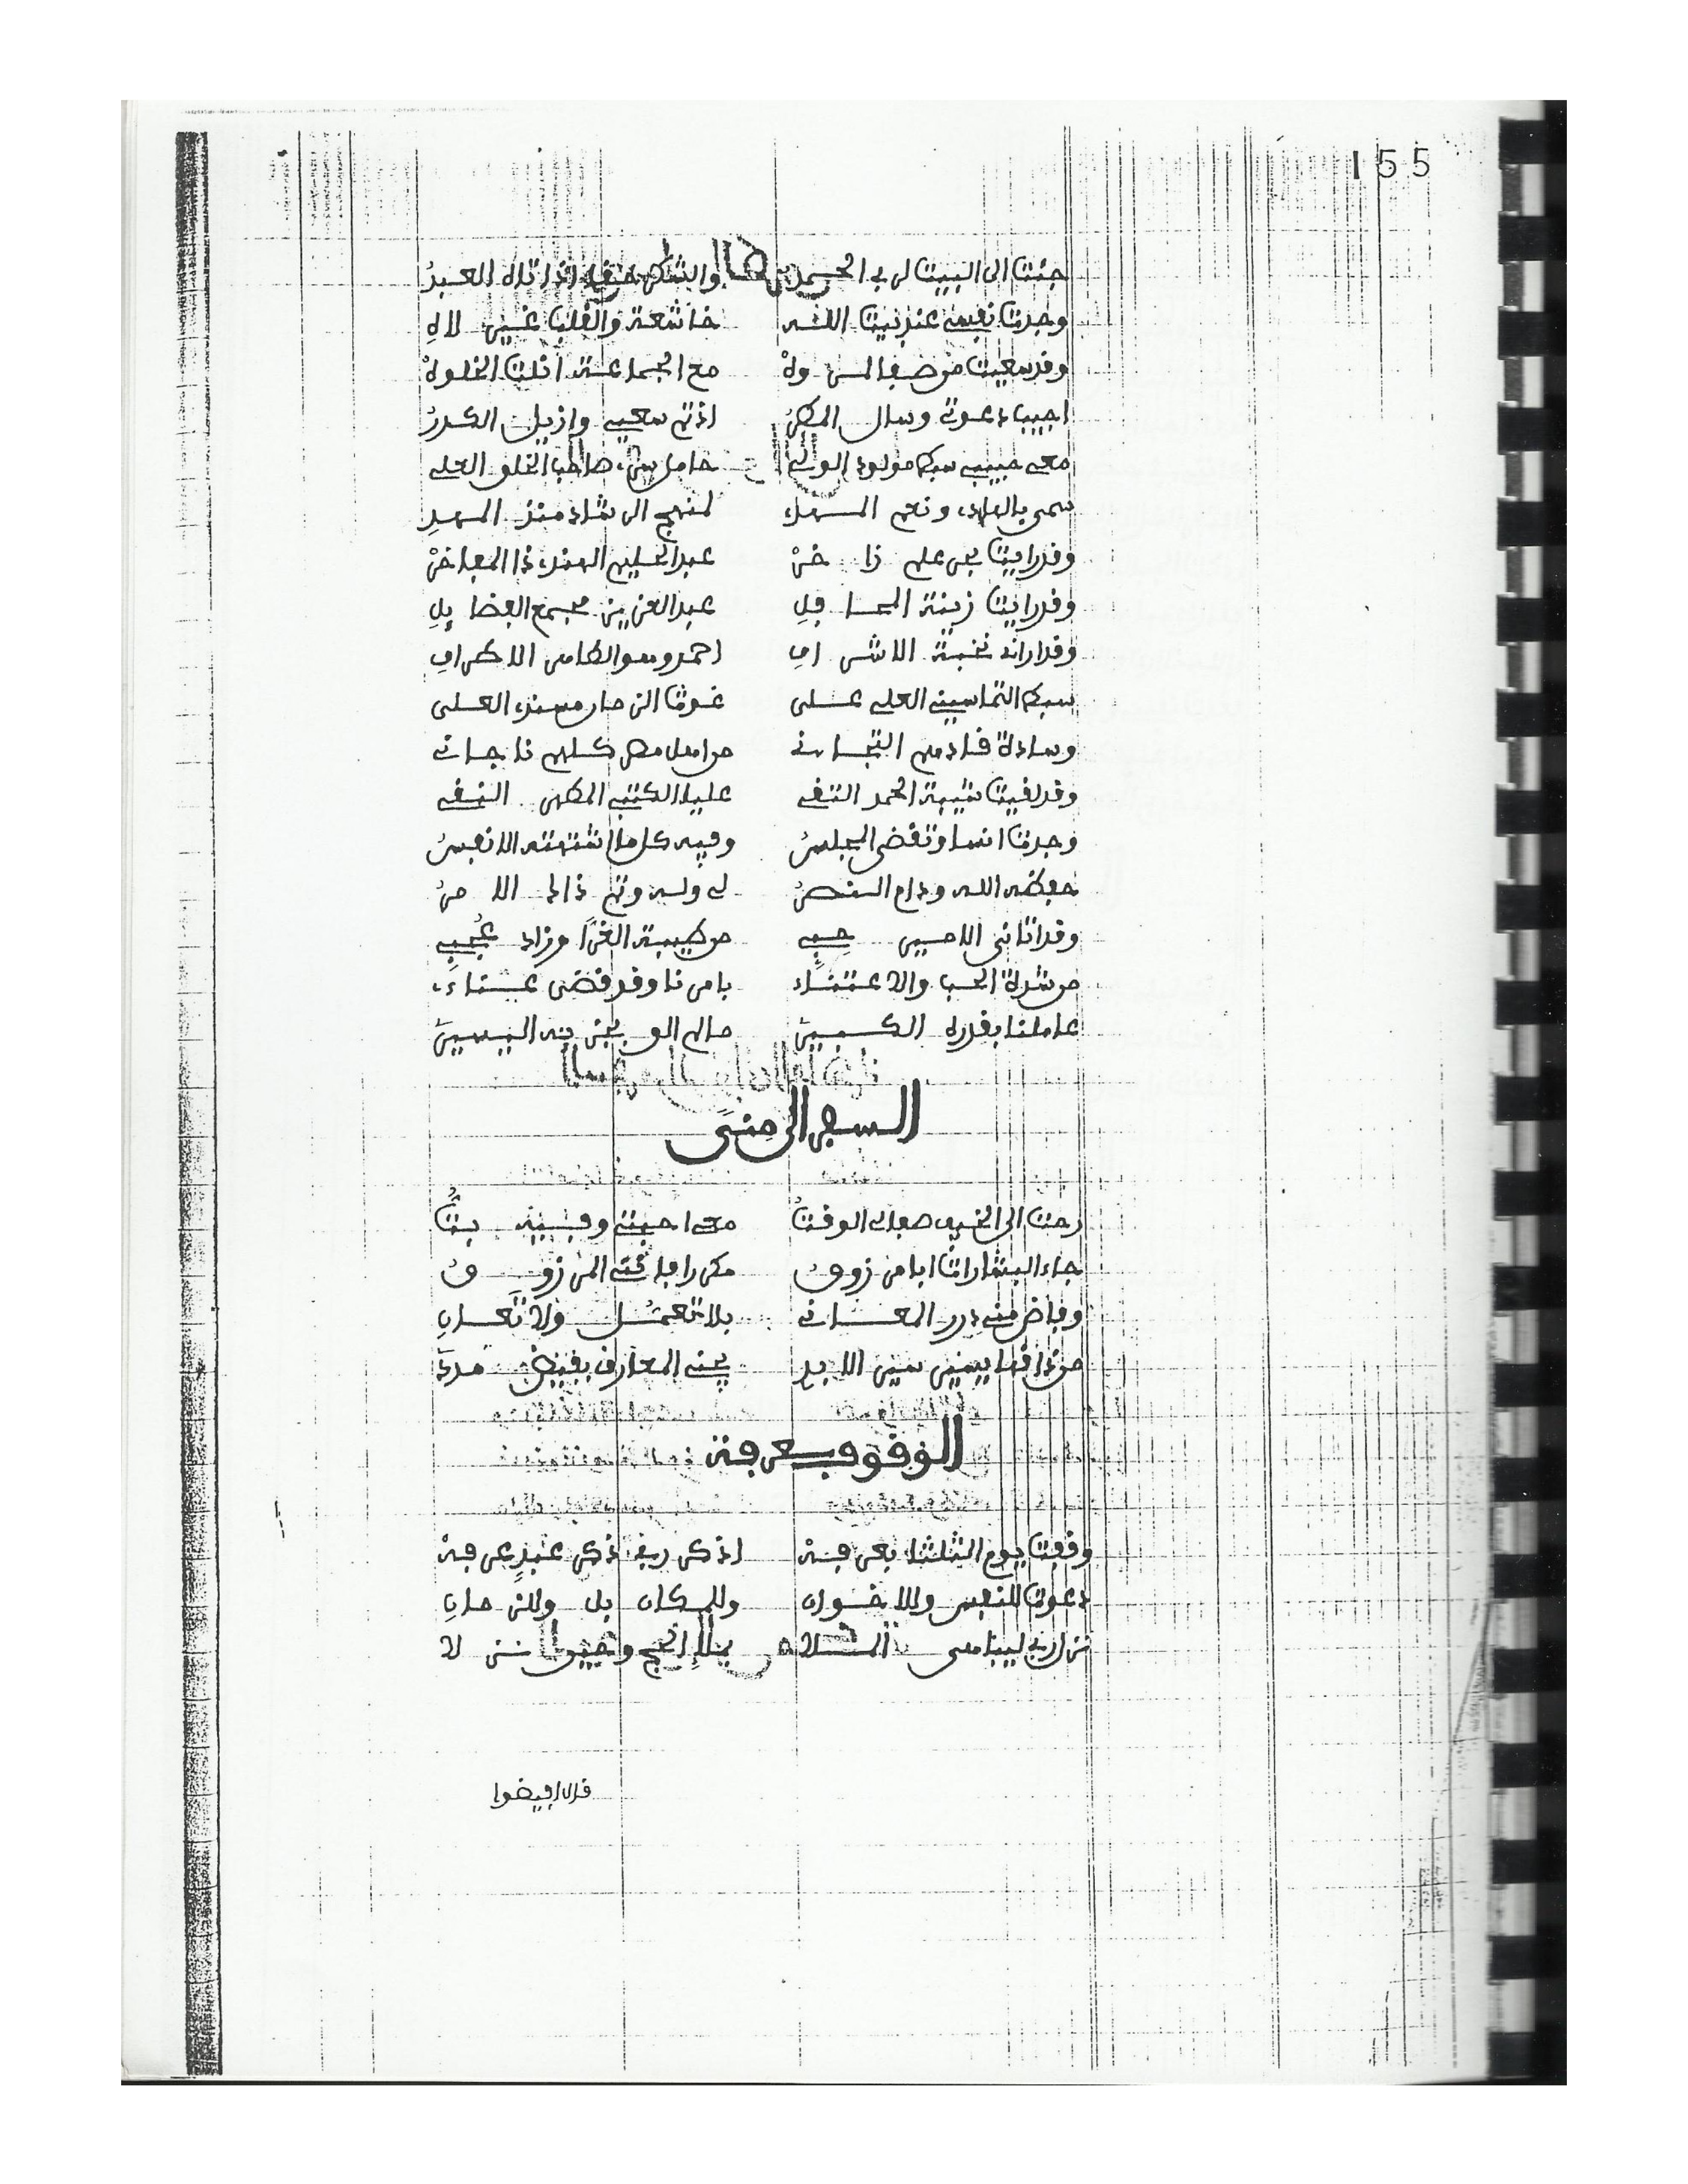 155
جئت الى البيت لربي الحمد والشكر حقا اذ اتاه العبد
وجدت نفسي عند بيت الله خاشعة والقلب غير لاه
وقد سعيت من صفا لمروه مع الجماعة انلت الخلوه
اجيب دعوتي وسال المطر اذ تم سعيي وازيل الكدر
معي حبيبي سبط مولود الولي حامل سر صاحب الختم العلي
سمي بالهادي ونعم المهدي لمنهج الرشاد منذ المهد
وقد رايت بحر علم زاخر عبد الحليم الهندي ذا المفاخر
وقد رايت زينة المحافل عبد العزيز مجمع الفضايل
وقد اراني نخبة الاشراف احمد وهو الطاهر الاكراف
سبط التماسيني العلي على غوث الذي صار مسندي العلى
وسادة قادمهم التجاني من اصل مصر كلهم ناجاني
وقد لقيت شيبة الحمد التقي عليا الكتبي المطهر النقي
وجدت انسا وتقضى المجلس وفيه كل ما اشتهته الانفس
حفظه الله ودام النصر لي وله وتم ذاك الامر
وقد اتاني الاحسين حبي من طيبة الغرا وزاد عجبي
من شدة الحب والاعتناء بامرنا وقد قضى عناءي
عاملنا بقدره الكبير مالم الو بجزيه اليسير
السفر الى منى
رحت الى الخيف صفالي الوقت معي احبتي وفيه بت
جاء البشارات ايا مرزوق مكررا فافتي المرزوق
وفاض مني درر المعاني بلا تعمل ولا تعان
من ذاقها يسير سير الابد يجني المعارف بفيض مدد
الوقوف بعرفة
وقفت يوم الثلثا بعرفه اذكر ربي ذكر عبد عرفه
دعوت للنفس وللاخوان وللمكان بل وللزمان
قال افيضوا